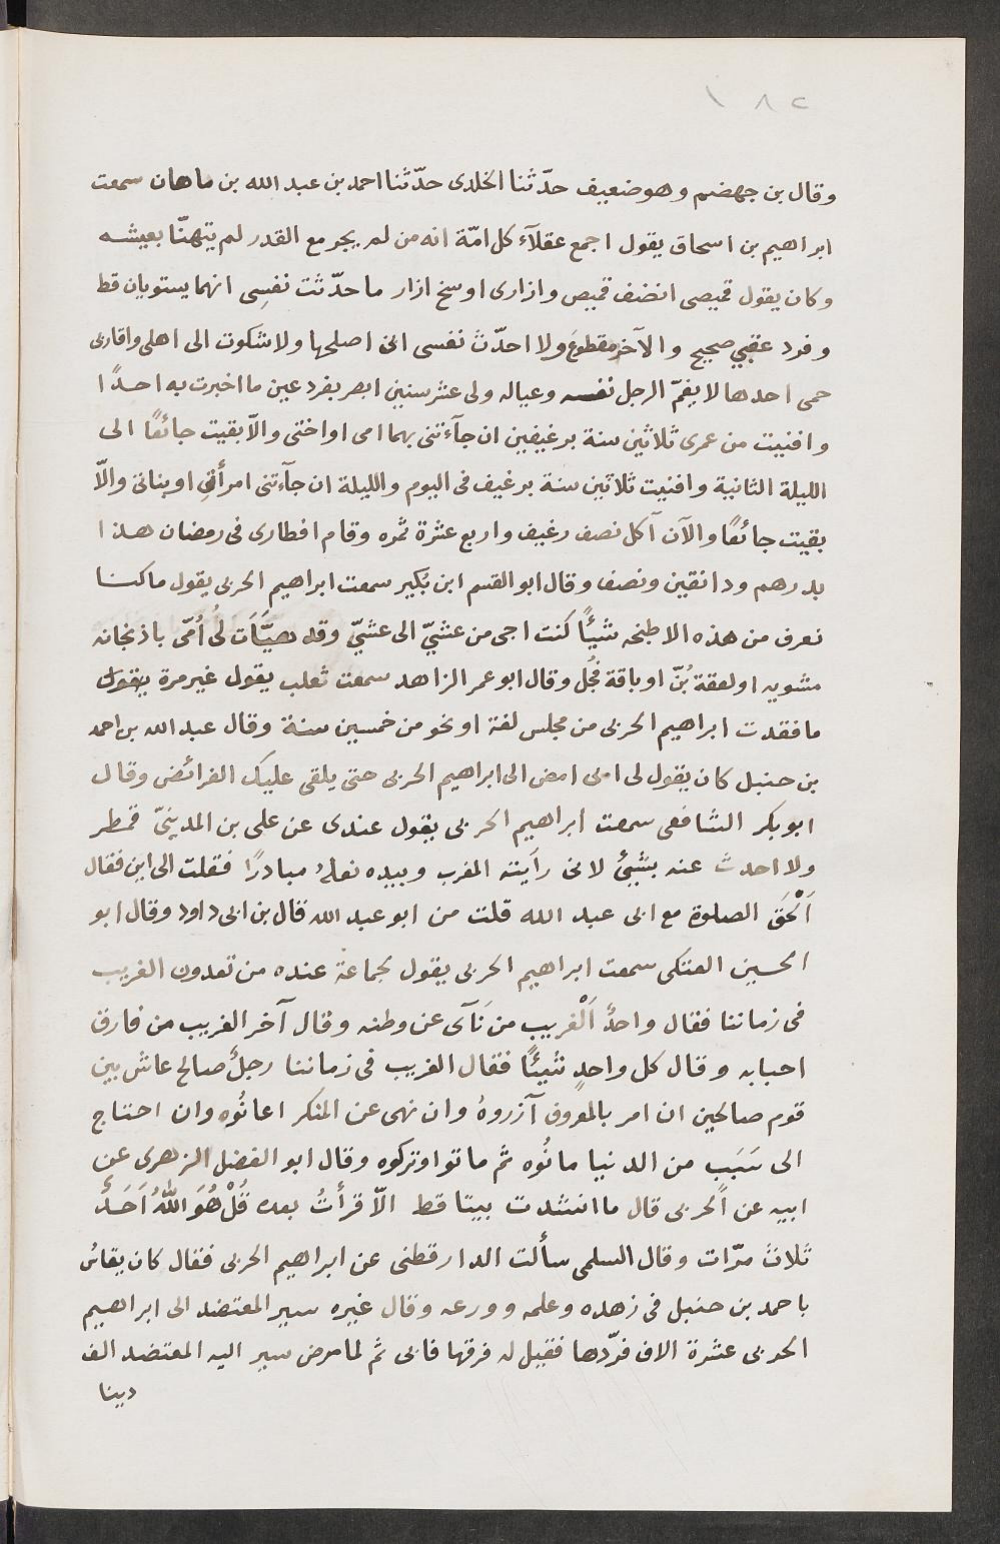 ١٨٢
وقال بن جهضم وهو ضعيف حدّثنا الخلدى حدّثنا احمد بن عبد الله بن ماهان سمعت
ابراهيم بن اسحاق يقول اجمع عقلآء كل امّة انه من لم يجر مع القدر لم يتهنّا بعيشه
وكان يقول قميصى انضف قميص وازارى اوسخ ازار ما حدّثت نفسِى انهما يستويان قط
وفرد عقبي صحيح والآخر مقطوعَ ولا احدّث نفسى انى اصلحها ولا شكوت الى اهلى واقاربى
حمى احدها لا يغمّ الرجل نفسه وعياله ولى عشر سنين ابصر بفرد عين ما اخبرت به احدًا
وافنيت من عمرى ثلاثين سنة برغيفين ان جآءتنى بهما امى او اختى والّا بقيت جائعًا الى
الليلة الثانية وافنيت ثلاثين سنة برغيف فى اليوم والليلة ان جآءتنى امرأتى او بناتى والّا
بقيت جائعًا والآن آكل نصف رغيف واربع عشرة ثمره وقام افطارى فى رمضان هذا
بدرهم ودانقين ونصف وقال ابو القسم ابن بُكير سمعت ابراهيم الحربى يقول ما كنا
نعرف من هذه الاطبخه شيئًا كنت اجى من عشيّ الى عشيّ وقد هيّأت لى اُمّى باذنجانه
مشويه او لعقة بُنّ او باقة فجُل وقال ابو عمر الزاهد سمعت ثعلب يقول غير مرة يقول
ما فقدت ابراهيم الحربى من مجلس لغة او نحو من خمسين سنة وقال عبد الله بن احمد
بن حنبل كان يقول لى ابى امض الى ابراهيم الحربى حتى يلقى عليك الفرائض وقال
ابو بكر الشافعى سمعت ابراهيم الحربى يقول عندى عن على بن المدينىّ قمطر
ولا احدث عنه بشيئ لانى رأيته المغرب وبيده نعله مبادرًا فقلت الى اين فقال
اَلْحَق الصلوة مع ابى عبد الله قلت من ابو عبد الله قال بن ابى داود وقال ابو
الحسين العتكى سمعت ابراهيم الحربى يقول لجماعة عنده من تعدون الغريب
فى زماننا فقال واحدٌ اَلْغريب من نَآى عن وطنه وقال آخر الغريب من فارق
احبابه وقال كل واحدٍ شيئًا فقال الغريب فى زماننا رجلٌ صالح عاش بين
قوم صالحين ان امر بالمعروف آزروهُ وان نهى عن المنكر اعانُوه وان احتاج
الى سَبَب من الدنيا مانُوه ثم ماتوا وتركوه وقال ابو الفضل الزهرى عن
ابيه عن الحربى قال ما انشدت بيتا قط الّا قرأتُ بعده قُلْ هُوَ اللّٰهُ اَحَدٌ
ثلاثَ مرّات وقال السلمى سألت الدارقطنى عن ابراهيم الحربى فقال كان يقاسُ
باحمد بن حنبل فى زهده وعلمه وورعه وقال غيره سير المعتضد الى ابراهيم
الحربى عشرة الاف فردّها فقيل له فرقها فابى ثم لما مرض سير اليه المعتضد الف
دينا